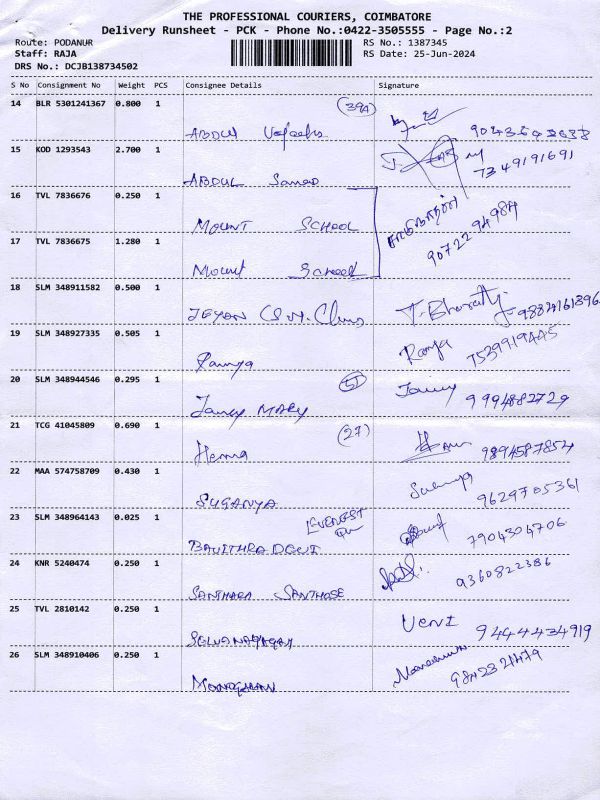 THE PROFESSIONAL COURIERS, COIMBATORE
Delivery Runsheet - PCK - Phone No.:0422-3505555 - Page No.:2
Route: PODANUR
RS No.: 1387345
Staff: RAJA
RS Date: 25-Jun-2024
DRS No.: DCJB138734502
S No Consignment No Weight PCS Consignee Details Signature
14 BLR 5301241367 0.800 1 ABDUL
15 KOD 1293543 2.700 1 ABDUL 7349191691
16 TVL 7836676 0.250 1 MOUNT SCHOOL
17 TVL 7836675 1.280 1 Mount School 9072294984
18 SLM 348911582 0.500 1 T. Bharathy
19 SLM 348927335 0.505 1 Ramya Ramya
20 SLM 348944546 0.295 1 (51) Jancy MARY Jancy 9994882729
21 TCG 41045809 0.690 1 (27) Hema 9894587854
22 MAA 574758709 0.430 1 SUGANYA Suganya 9629705361
23 SLM 348964143 0.025 1 BAVITHRA DEVI 7904304706
24 KNR 5240474 0.250 1 SANTHARA SANTHOSE 9360822386
25 TVL 2810142 0.250 1 Veni 9444434919
26 SLM 348910406 0.250 1 9842321479